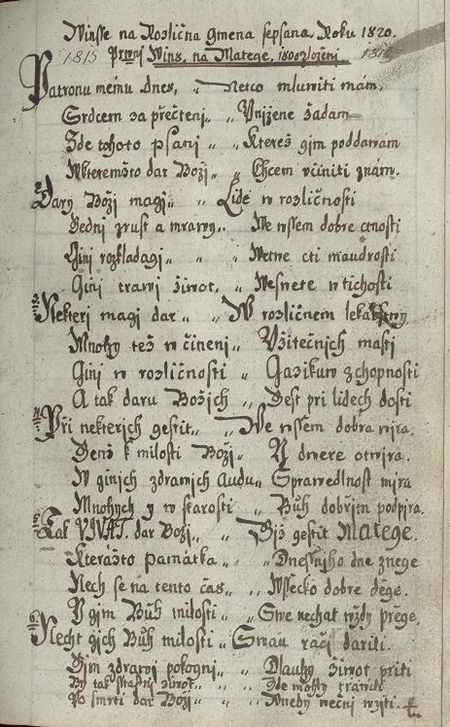 Winsse na Rozlična gmena sepsana. Roku 1820.
1815 Prwni Wins, na Matege, 1800 zloženj 18
Patronu memu dnes, „ Neco mluwiti mám,
Srdcem za přečtenj „ „ Vnijžene žadam
Zde tohoto psanj „ „ Kterež gim poddawam
W kteremžto dar Božj „ Chcem včiniti znám.
2. Dary Božj magj „ „ Lide w rozličnosti
Gednj zrust a mrawy „ We wssem dobre ctnosti
Ginj rozkladagj „ „ Wetwe cti maudrosti
Ginj trawj žiwot. „ Wesnete w tichosti
3. Nekterj magj dar „ „ W rozličnem lekařstwy
Mnohy tež w činenj „ Vžitečnich mastj
Ginj w rozličnosti „ Gazikuw schopnosti
A tak daru Božjch „ Gest pri lidech dosti
4. Při nekterjch gestit „ „ We wssem dobra wjra.
Genž k milosti Božj „ Y dwere otwjra.
W ginjch zdrawjch audu „ Sprawedlnost mjra
Mnohych y w starosti „ Bůh dobřjm podpjra.
5. Tak VIVAT. dar Božj „ „ Giž gestit Matege.
Kterážto pamàtka „ „ Dnessnjho dne znege
Nech se na tento čas „ „ Wssecko dobre dége.
Y gim Bůh milosti „ „ Swe nechat wždy přège.
6. Nechť gich Bůh milosti „ Smau račj dariti.
Gim zdrawj pokognj „ „ Dlauhy žiwot přiti
By tak sstastnj žiwot „ „ Zde mohly trawiti
Po smrti dar Božj „ „ A neby wečnj wziti.